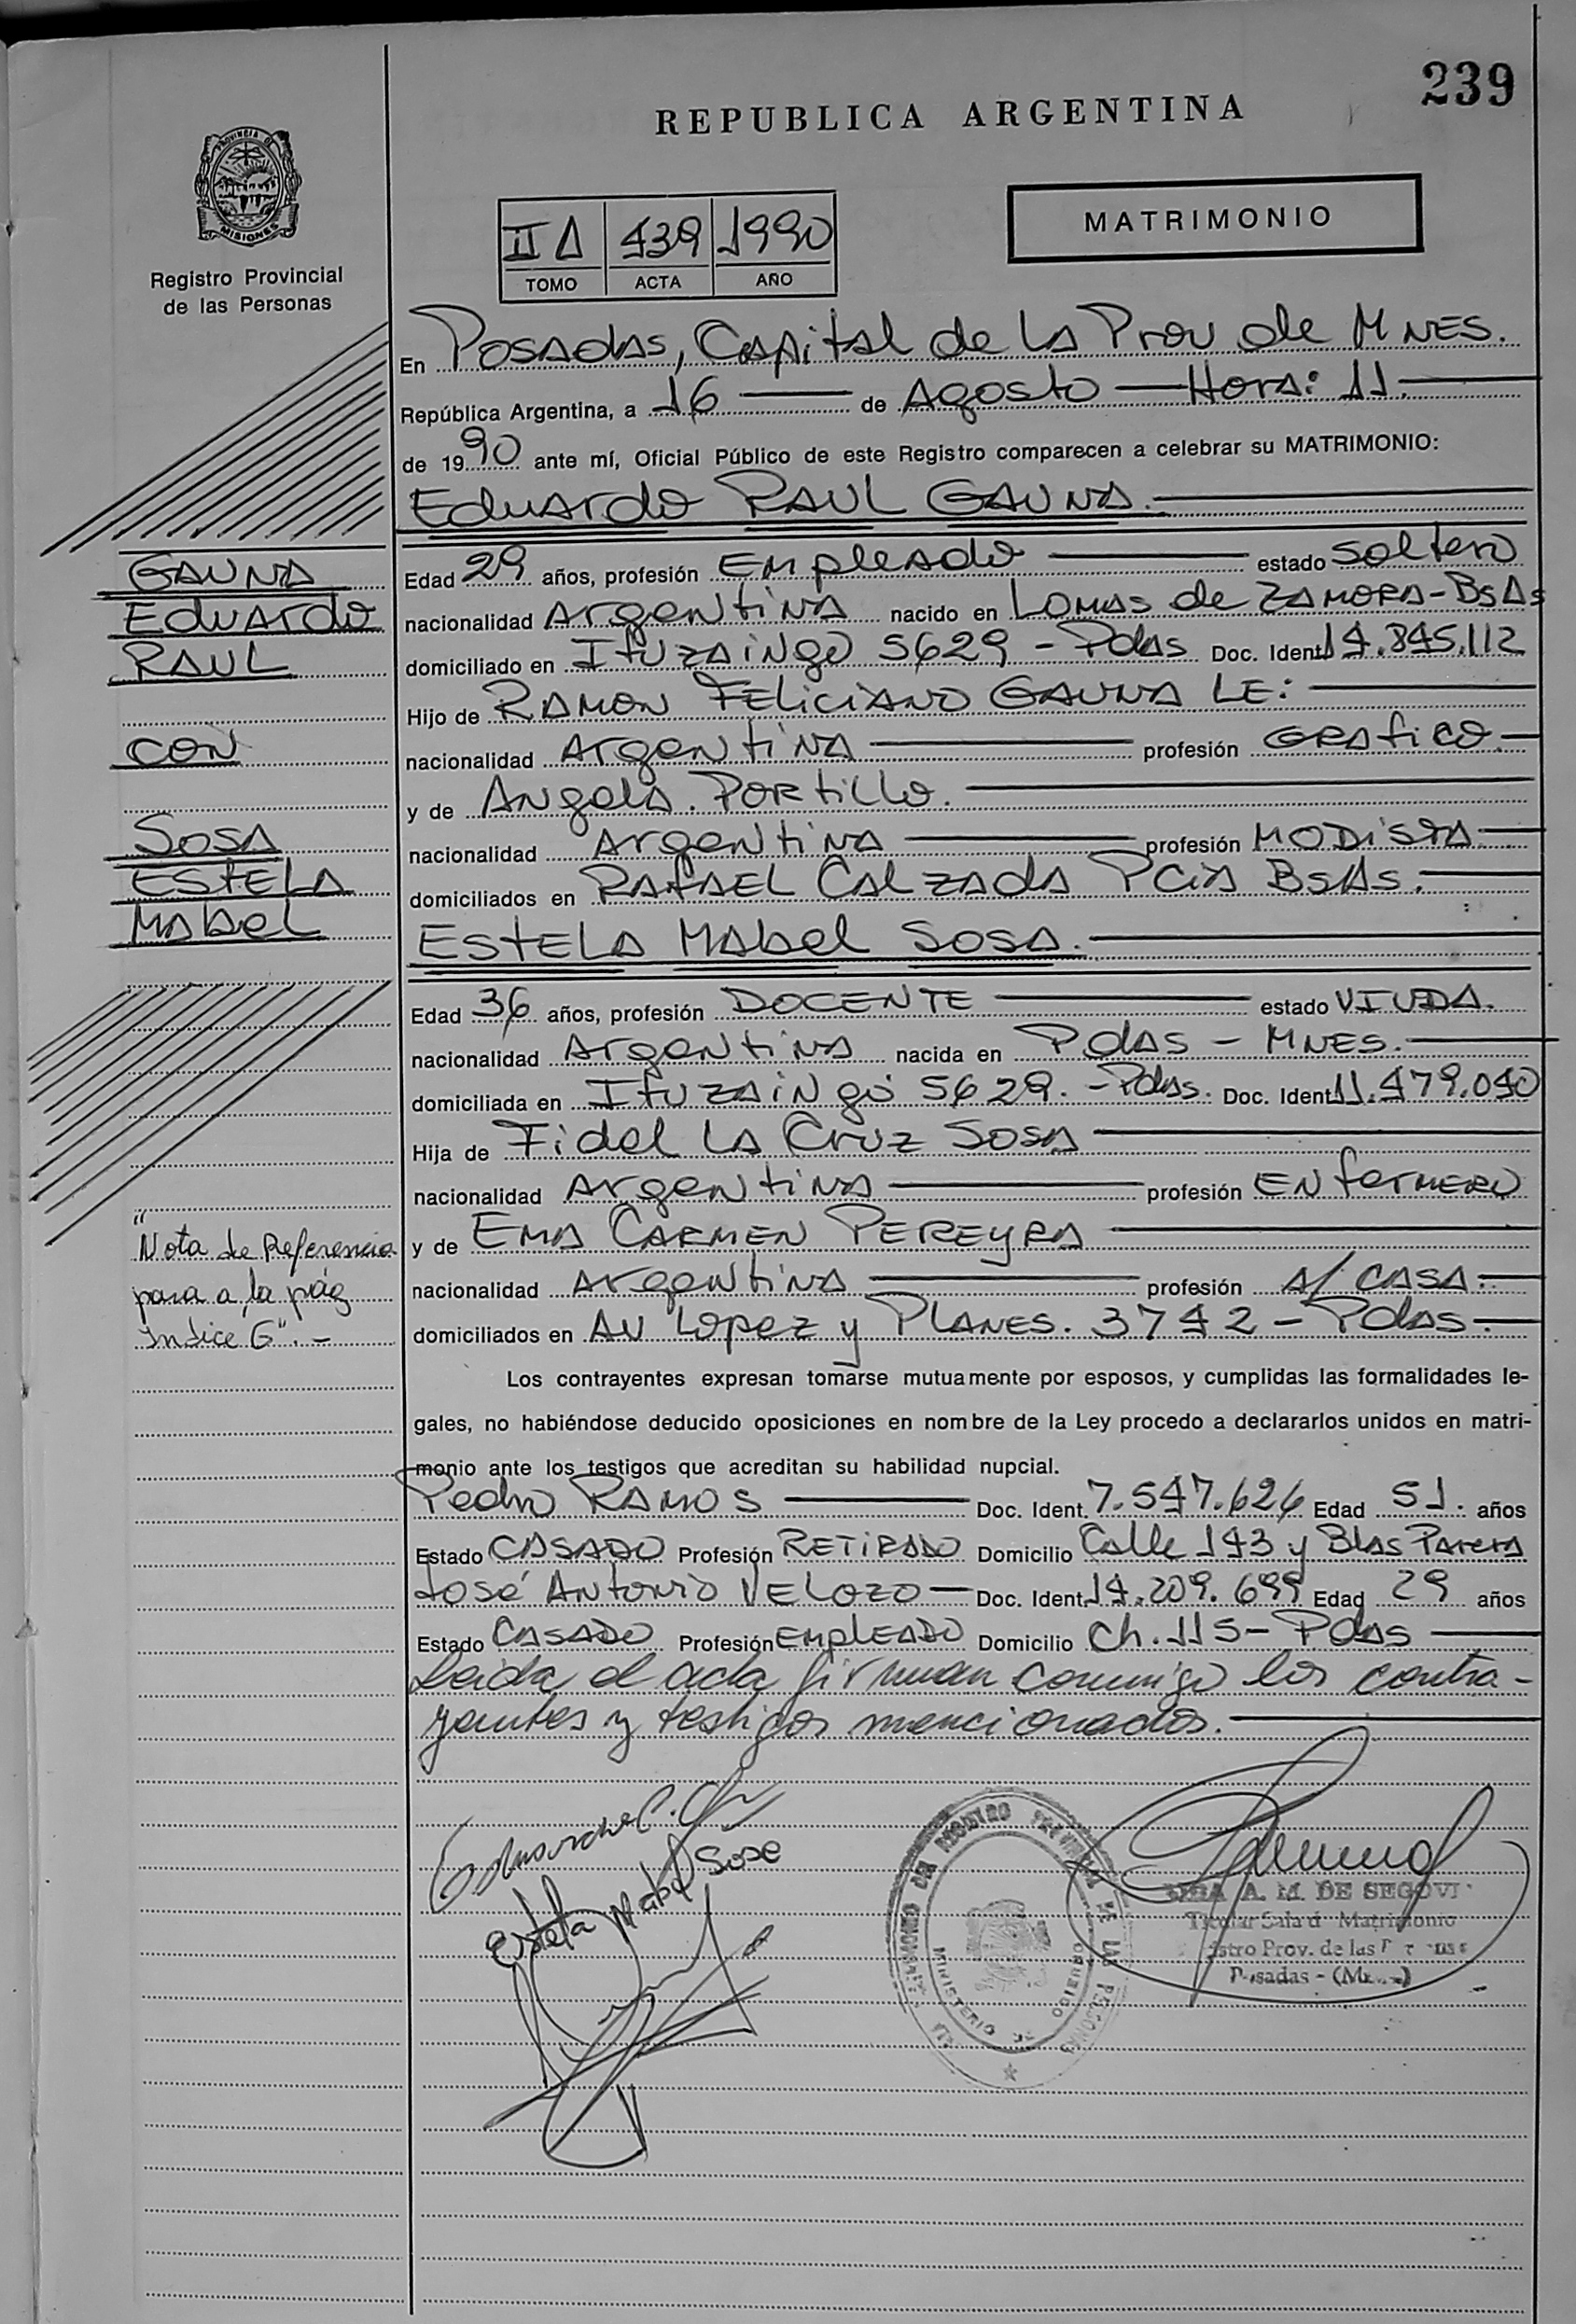 239
REPUBLICA ARGENTINA
PROVINCIA D
MISIONES
Registro Provincial
de las Personas
II A 439 1990
TOMO ACTA AÑO
MATRIMONIO
En Posadas, Capital de la Prov de Mnes.
República Argentina, a 16 — de Agosto — Hora: 11.—
de 1990 ante mí, Oficial Público de este Registro comparecen a celebrar su MATRIMONIO:
Eduardo RAUL GAUNA.—
GAUNA
Eduardo
RAUL
CON
SOSA
ESTELA
Mabel
Edad 29 años, profesión Empleado — estado soltero
nacionalidad Argentina nacido en Lomas de ZAMORA-BsAs
domiciliado en Ituzaingo 5629 - Pdas Doc. Ident. 14.845.112
Hijo de RAMON FELICIANO GAUNA LE: —
nacionalidad Argentina — profesión GRAfico.—
y de Angela. PORtillo.—
nacionalidad Argentina — profesión MODISTA—
domiciliados en RAFAEL CALZADA Pcia BsAs.—
ESTELA MAbel SOSA.—
Edad 36 años, profesión DOCENTE — estado VIUDA.
nacionalidad Argentina nacida en Pdas - MNES.—
domiciliada en Ituzaingó 5629.-Pdas. Doc. Ident. 11.479.040
Hija de Fidel LA Cruz SOSA —
nacionalidad Argentina — profesión ENfermERO
y de EMA CARMEN PEREYRA —
nacionalidad Argentina — profesión A/ CASA.—
domiciliados en Av Lopez y PLANES. 3742 - Pdas.—
"Nota de Referencia
pasa a la pág
Indice G".-
Los contrayentes expresan tomarse mutuamente por esposos, y cumplidas las formalidades le-
gales, no habiéndose deducido oposiciones en nombre de la Ley procedo a declararlos unidos en matri-
monio ante los testigos que acreditan su habilidad nupcial.
Pedro RAMOS — Doc. Ident. 7.547.626 Edad 51. años
Estado CASADO Profesión RETIRADO Domicilio Calle 143 y Blas Parera
José ANtonio VELOZO — Doc. Ident. 14.209.699 Edad 29 años
Estado CASADO Profesión EMPLEADO Domicilio Ch. 115- Pdas —
Leida el acta firman conmigo los contra-
yentes y testigos mencionados.—
Estela Mabel Sosa
A. M. DE SEGOVI
Titular Sala d Matrimonio
istro Prov. de las
Posadas - 
MINISTERIO DE GOBIERNO